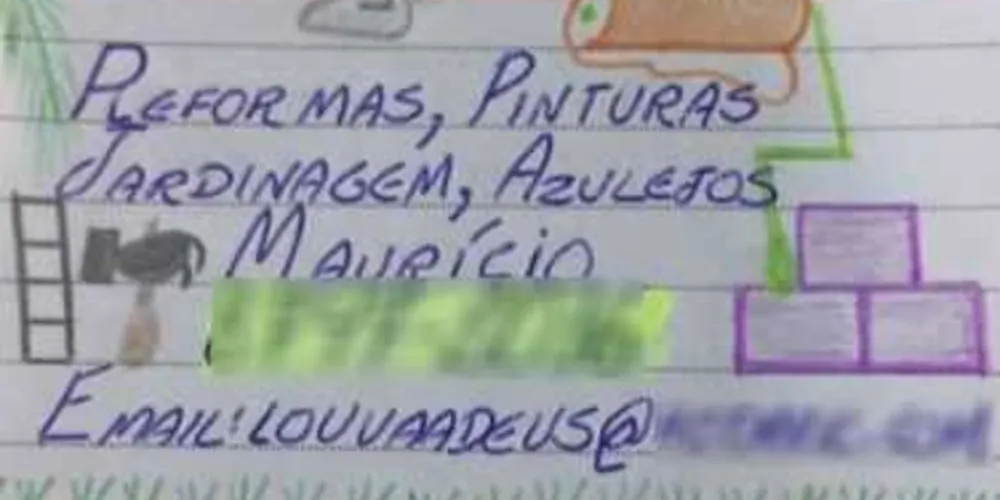 REFORMAS, PINTURAS
JARDINAGEM, AZULEJOS
MAURÍCIO
EMAIL: LOUVAADEUS@